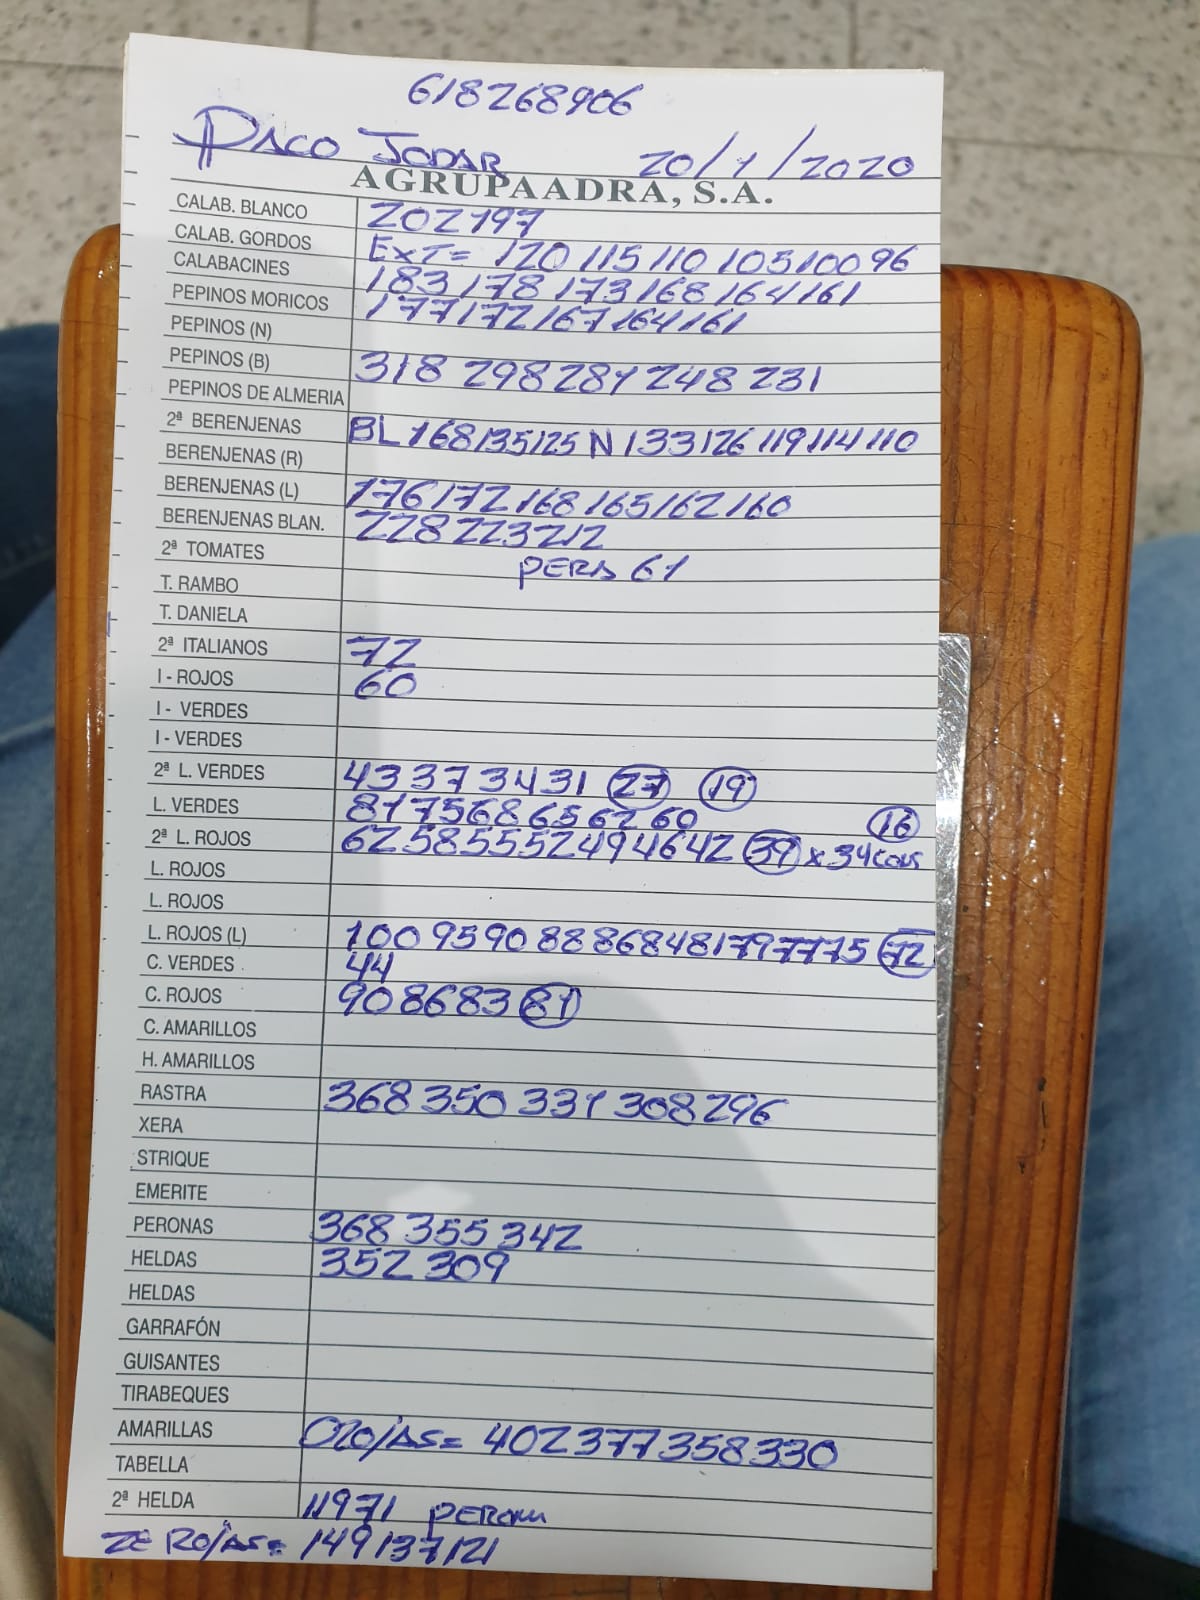 618268906
PACO JODAR 20/1/2020
AGRUPAADRA, S.A.
CALAB. BLANCO 202 197
CALAB. GORDOS EXT= 120 115 110 105 100 96
CALABACINES 183 178 173 168 164 161
PEPINOS MORICOS 177 172 167 164 161
PEPINOS (N)
PEPINOS (B) 318 298 281 248 231
PEPINOS DE ALMERIA
2ª BERENJENAS BL 168 135 125 N 133 126 119 114 110
BERENJENAS (R)
BERENJENAS (L) 176 172 168 165 162 160
BERENJENAS BLAN. 228 223 212
2ª TOMATES PERA 61
T. RAMBO
T. DANIELA
2ª ITALIANOS 72
I - ROJOS 60
I - VERDES
I - VERDES
2ª L. VERDES 43 37 34 31 27 19
L. VERDES 81 75 68 65 62 60 16
2ª L. ROJOS 62 58 55 52 49 46 42 39 x 34 cons
L. ROJOS
L. ROJOS
L. ROJOS (L) 100 95 90 88 86 84 81 79 77 75 72
C. VERDES 44
C. ROJOS 90 86 83 81
C. AMARILLOS
H. AMARILLOS
RASTRA 368 350 331 308 296
XERA
STRIQUE
EMERITE
PERONAS 368 355 342
HELDAS 352 309
HELDAS
GARRAFÓN
GUISANTES
TIRABEQUES
AMARILLAS ROJAS= 402 377 358 330
TABELLA
2ª HELDA 119 71 PERONA
2ª ROJAS= 149 137 121